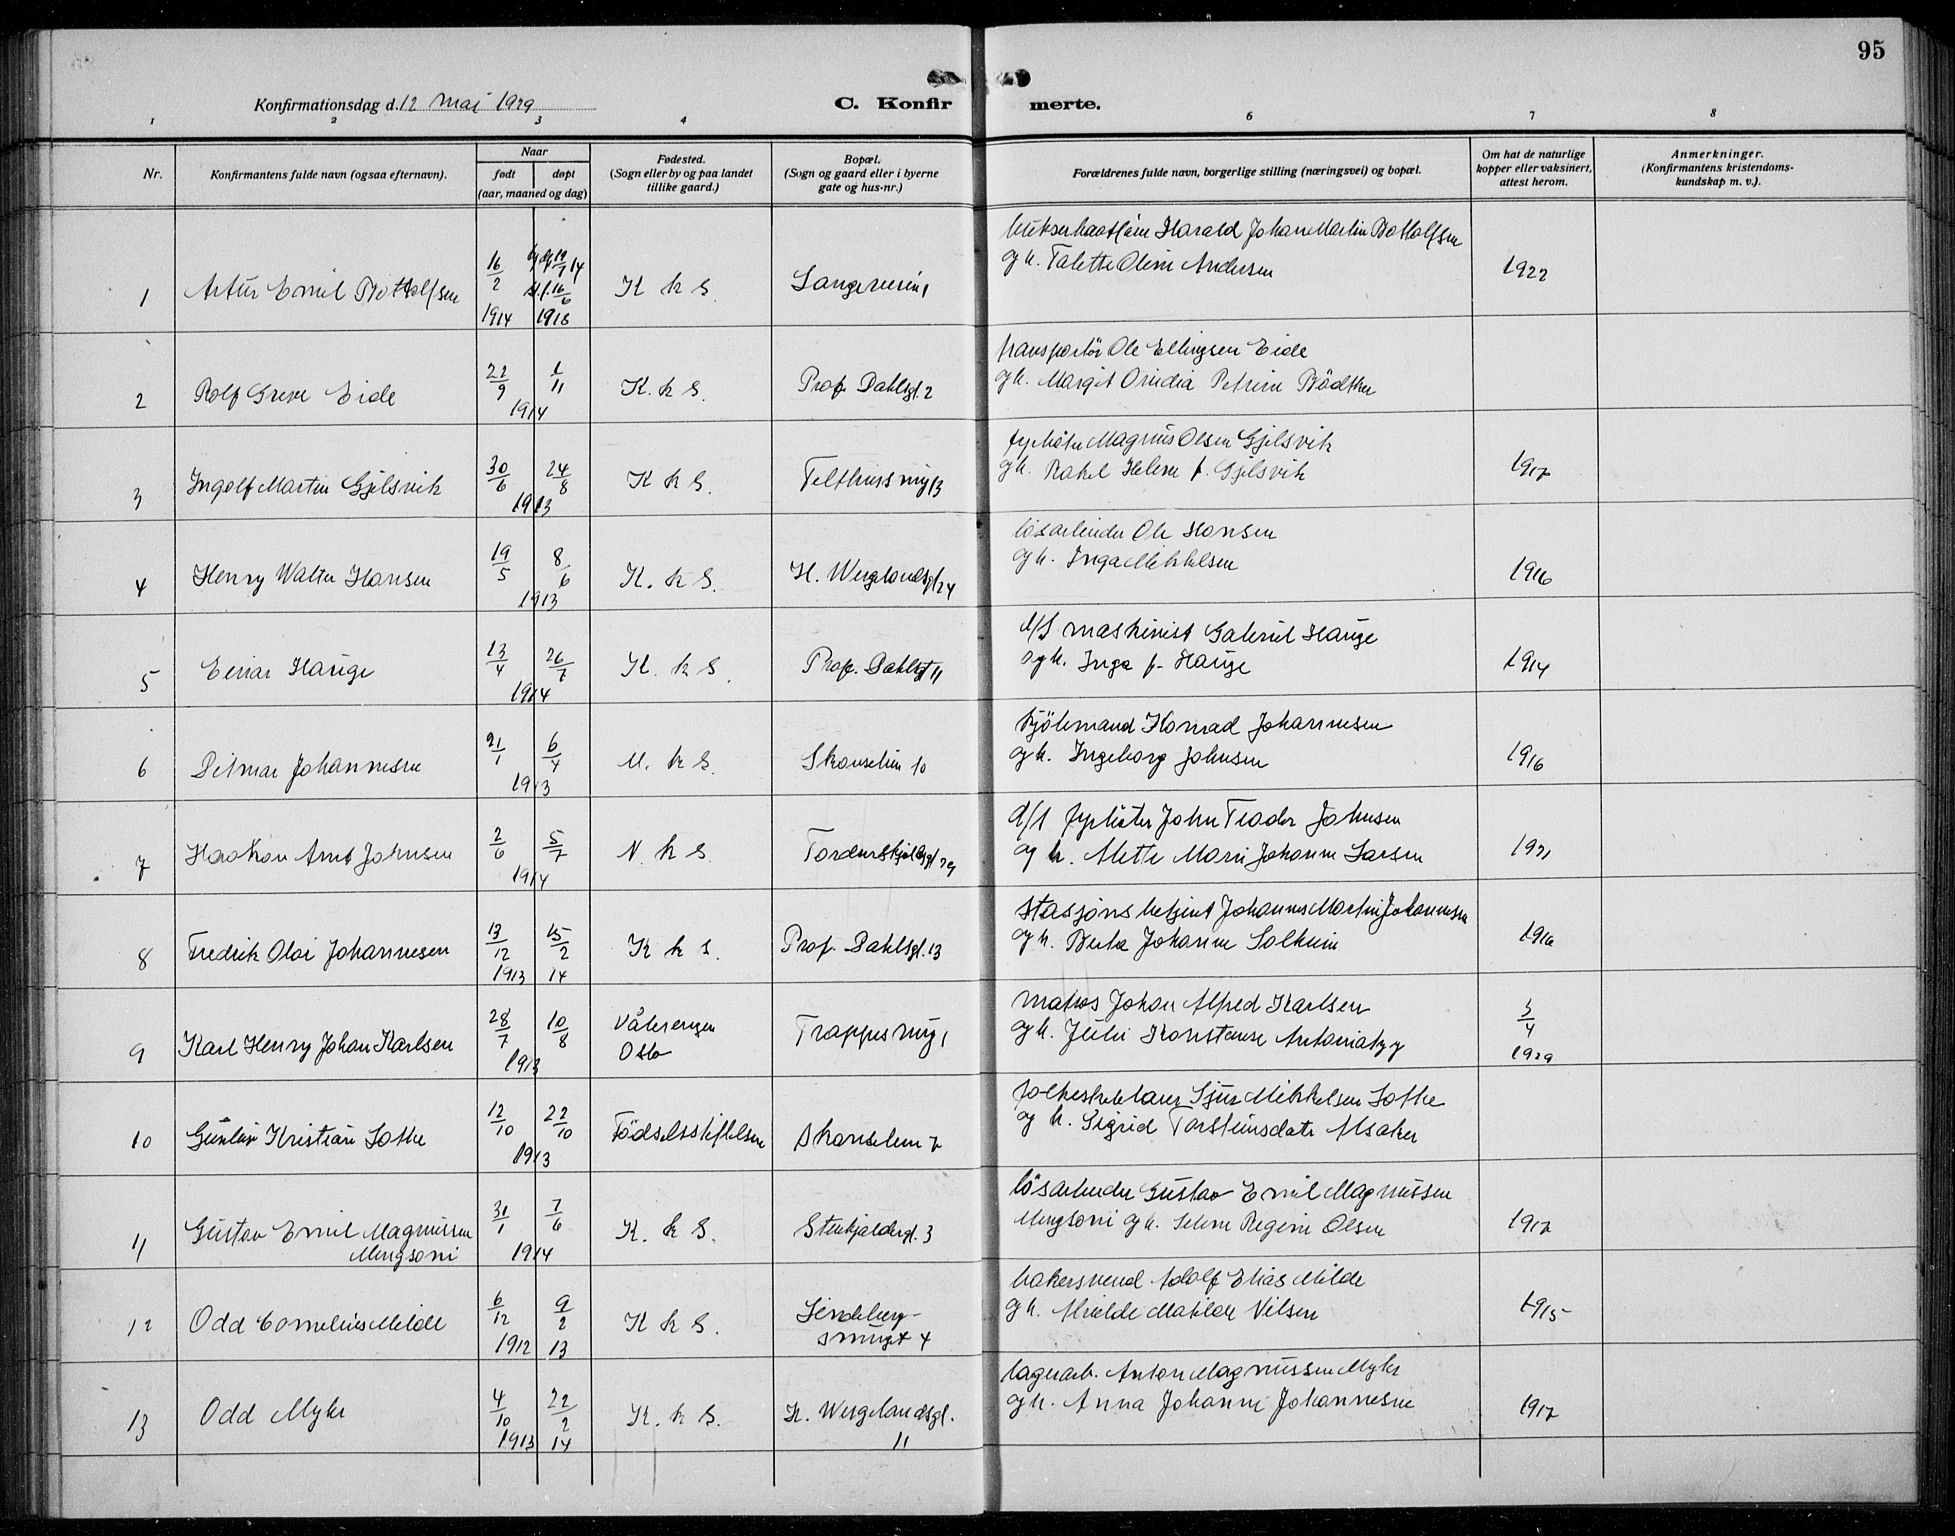 95
Konfirmationsdag d. 12 mai 1929
C. Konfirmerte.
1 2 3 4 6 7 8
Nr.
Konfirmantens fulde navn (ogsaa efternavn).
Naar
født døpt
(aar, maaned og dag)
Fødested.
(Sogn eller by og paa landet
tillike gaard.)
Bopæl.
(Sogn og gaard eller i byerne
gate og hus-nr.)
Forældrenes fulde navn, borgerlige stilling (næringsvei) og bopæl.
Om hat de naturlige
kopper eller vaksinert,
attest herom.
Anmerkninger.
(Konfirmantens kristendoms-
kundskap m. v.).
1 Artur Emil Bottolfsen 16/2 1914 16/6 1918 K k S
Harald Johan Martin Bottolfsen
og h. Talette Oline Andersen 1922
2 Rolf Greve Eide 22/9 1/11 1914 K. k S. Prof. Dahlsgt. 2
transportör Ole Ellingsen Eide
og h. Margit Petrine Bödtker
3 Ingolf Martin Gjelsvik 30/6 24/8 1913 K k S.
fyrböter Magnus Olsen Gjelsvik
og h. Rakel Helene f. Gjelsvik 1917
4 Henry Walter Hansen 19/5 8/6 1913 K. k S. H. Wergelandsgt 24
lösarbeider Ole Hansen
og h. Inga Mikkelsen 1916
5 Einar Hauge 13/4 26/7 1914 K. k S. Prof. Dahlsgt 11
d/S maskinist Gabriel Hauge
og h. Inga f. Hauge 1914
6 Ditmar Johannesen 21/1 6/4 1913 M. k S. Skanselien 10
Konrad Johannesen
og h. Ingeborg Johnsen 1916
7 Haakon Arnt Johnsen 2/6 5/7 1914 N. k S. Tordenskjoldsgt 29
d/S fyrböter John Teodor Johnsen
og h. Mette Marie Johanne Larsen 1921
8 Fredrik Olai Johannesen 13/12 1913 15/2 14 K k S. Prof. Dahlsgt. 13
stasjons betjent Johannes Martin Johannesen
og h. Berta Johanne Solheim 1916
9 Karl Henry Johan Karlsen 28/7 10/8 1913 Vålerengen
Oslo
matros Johan Alfred Karlsen
og h. Julie Konstanse 3/4 1929
10 Kristian Lothe 12/10 22/10 1913 Födselsstiftelsen Skanselien 7
Sjur Mikkelsen Lothe
og h. Sigrid Torsteinsdatter Alsaker
11 Gustav Emil Magnussen
Mengsoni 31/1 7/6 1914 K. k S. Stenkjeldergt. 3
lösarbeider Gustav Emil Magnussen
Mengsoni og h. Selene Regine Olsen 1917
12 Odd Cornelius Milde 6/12 1912 9/2 13 K k S. Lindeberg-
smuget 4
bakersvend Adolf Elias Milde
og h. Alvilde Matilde Nilsen 1915
13 Odd Myhr 4/10 1913 22/2 14 K. k S. H. Wergelandsgt.
11
lagerarb. Anton Magnussen Myhr
og h. Anna Johanne Johannesen 1917